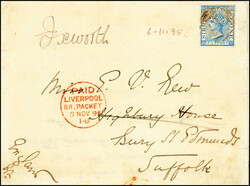 Ixworth
6-11-95.
Miss E. V. Rew
PAID
LIVERPOOL
BR. PACKET
5 NOV 95
Highbury House
Bury St Edmunds
Suffolk
England